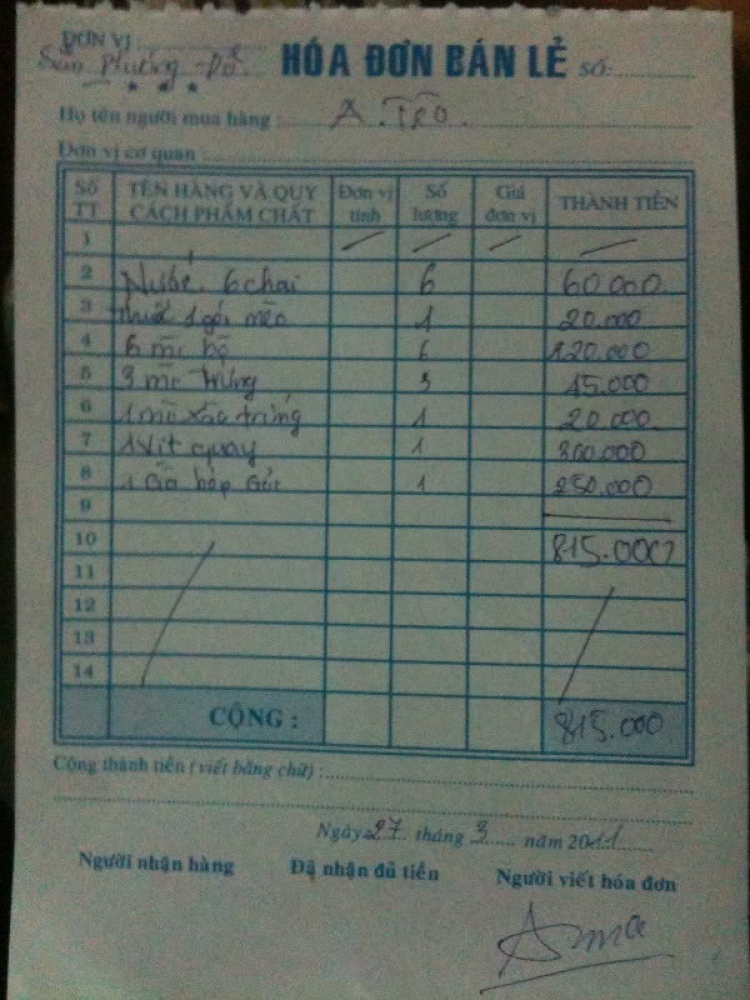 ĐƠN VỊ
HÓA ĐƠN BÁN LẺ SỐ:
Sân Phượng Đỏ
Họ tên người mua hàng : A. Tèo.
Đơn vị cơ quan :
Số TT TÊN HÀNG VÀ QUY CÁCH PHẨM CHẤT Đơn vị tính Số lượng Giá đơn vị THÀNH TIỀN
1
2 Nước 6 chai 6 60.000
3 thuốc 1 gói mèo 1 20.000
4 6 mì bò 6 120.000
5 3 mì trứng 3 45.000
6 1 mì xào trứng 1 20.000
7 1 Vịt quay 1 300.000
8 1 Gà hấp 1 250.000
9
10 815.000
11
12
13
14
CỘNG : 815.000
Cộng thành tiền (viết bằng chữ) :
Ngày 27 tháng 3 năm 2011
Người nhận hàng Đã nhận đủ tiền Người viết hóa đơn